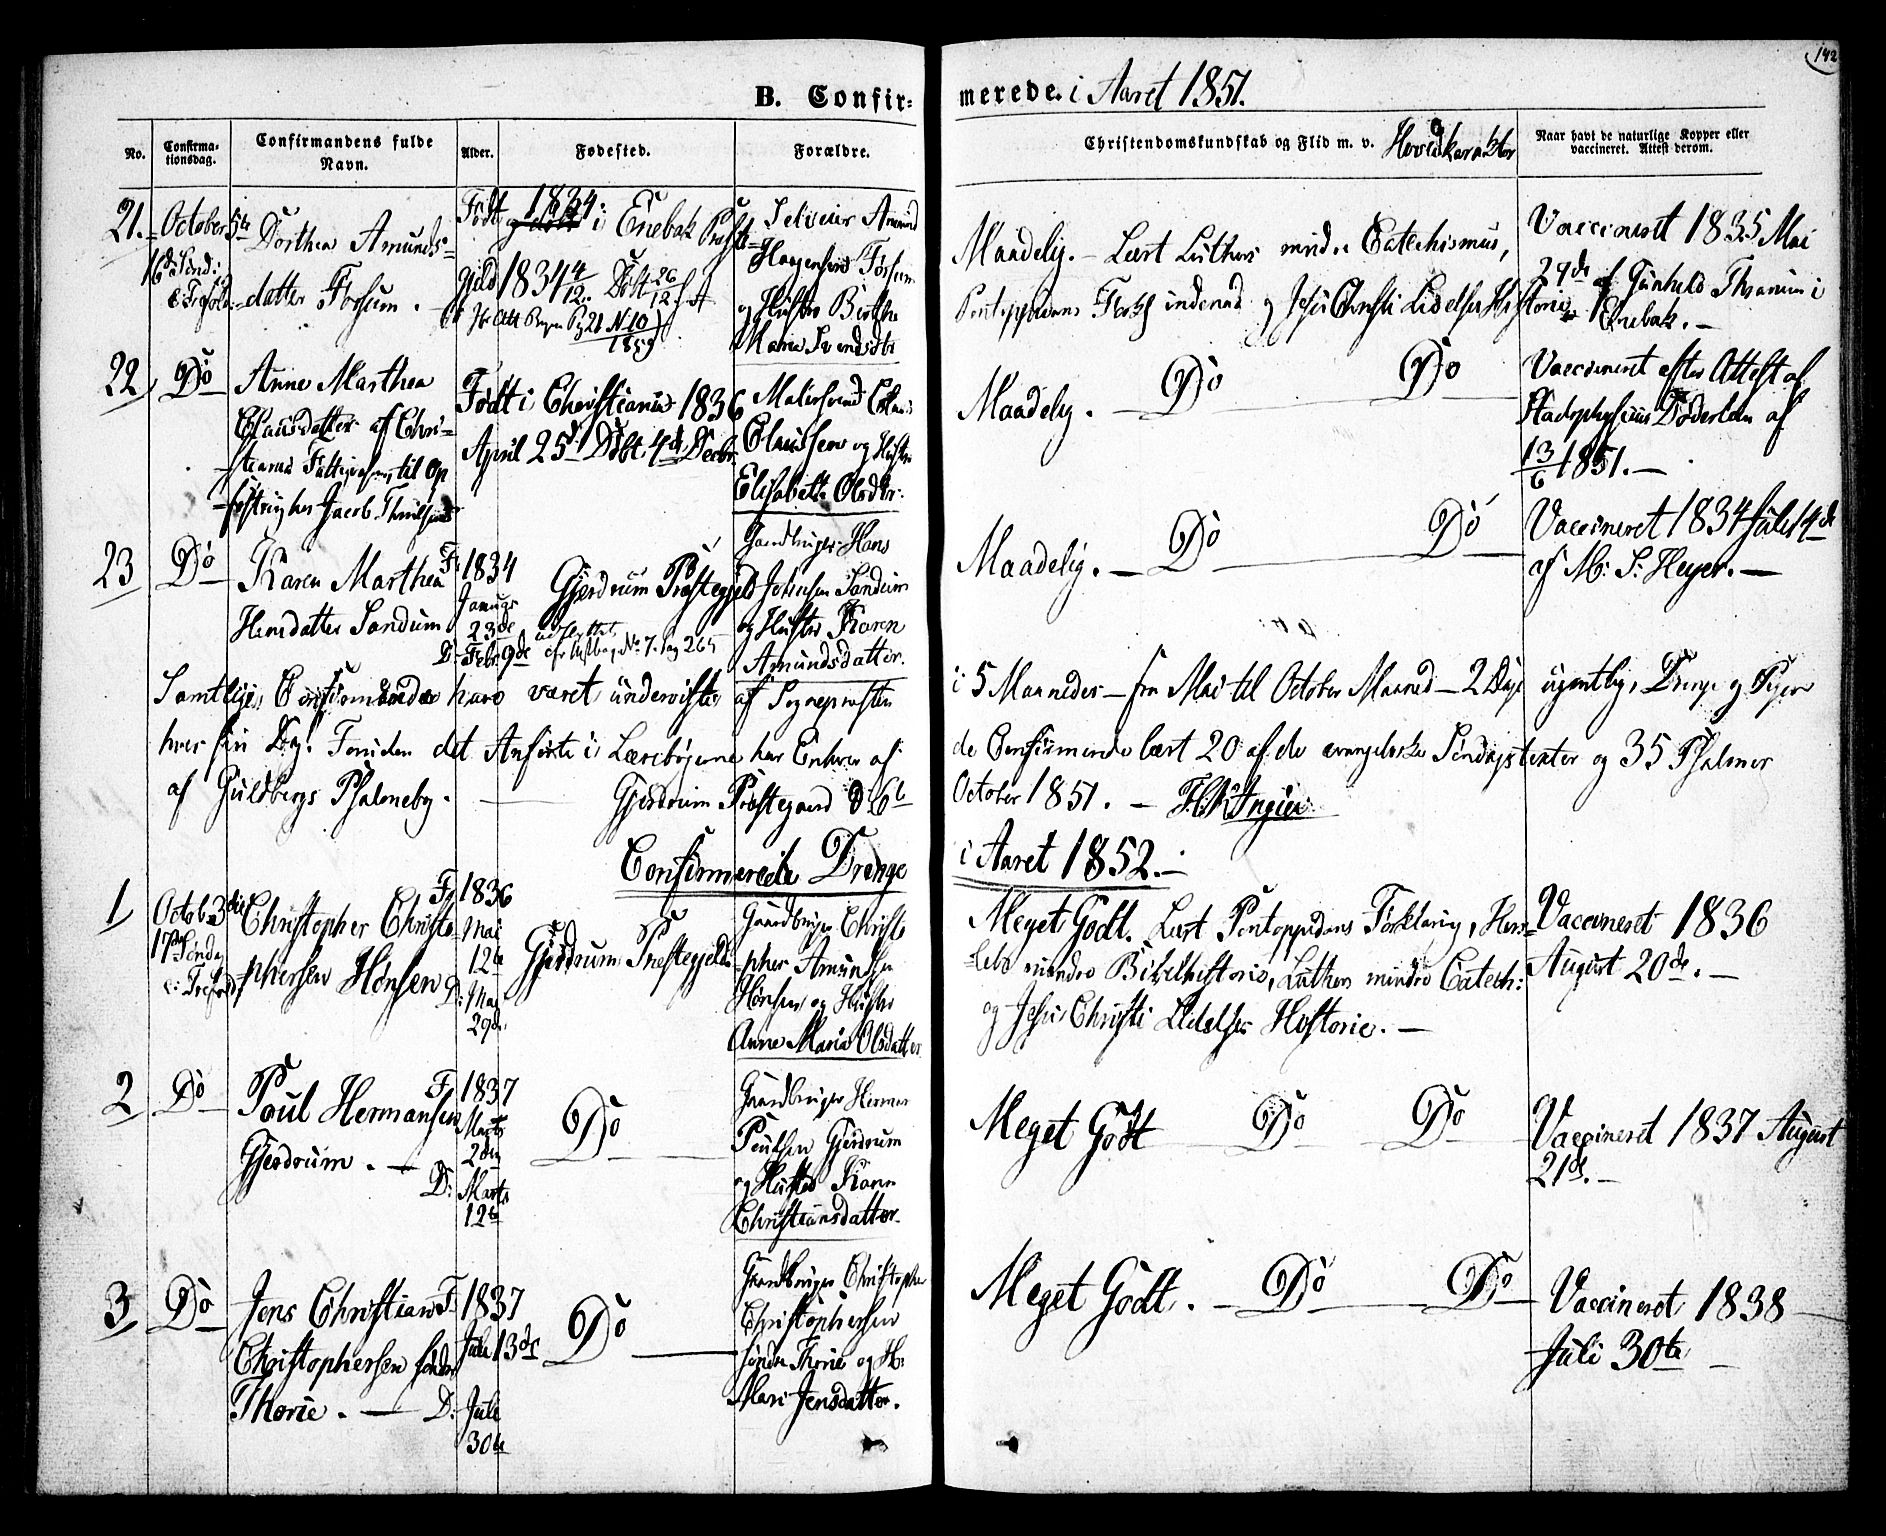 142
B. Confir=merede. i Aaret 1851.
No.
Confirma-
tionsdag.
Confirmandens fulde
Navn.
Alder.
Fødested.
Forældre.
Christendomskundskab og Flid m. v.
Naar havt de naturlige Kopper eller
vaccineret. Attest derom.
21.
October 5te
Dorthea Amunds=
datter Forsum.
Født 1834 i Enebak
1834 4/12. Døbt 26/12.
Pag 21 N 10
1859
og Hustro Birthe
Maria
Maadelig. – Lært Luthers mindre Catechismus,
og Jesu Christi Lidelses Historie
Vaccineret 1835 Mai
29de af Gunhild
Enebak. –
22
Do
Anne Marthea
Clausdatter af Chri=
til Op
Jacob
Født i Christiania 1836
April 25d Døbt 4de Decbr.
Claussen og Hustro
Elisabeth Olsdtr.
Maadelig. – Do Do
Vaccineret efter Attest af
Stadsphysicus Døderlein af
13/6 1851. –
23
Do
Karen Marthea
Hansdatter Sandum
F: 1834
Januar
23de
D: Febr. 9de
Gjerdrum Præstegjeld
udflyttet
No 7. Pag 265
Gaardbruger Hans
Johnsen Sandum
og Hustro Karen
Amundsdatter.
Maadelig. – Do Do
Vaccineret 1834 Juli 4de
af M: S: Heyer. –
Samtlige Confirmander have været underviste af Sognepræsten i 5 Maaneder – fra Mai til October Maaned – 2 Dage ugentlig, Drenge og Piger
hver sin Dag. Foruden det Anførte i Lærebøgerne har Enhver af de Confirmerede lært 20 af de evangeliske Søndagstexter og 35 Psalmer
af Guldbergs Psalmebog. – Gjerdrum Præstegaard d. 6te October 1851. –
Confirmerede Drenge i Aaret 1852. –
1
Octob. 3die
17de Søndag
e: Trefold:
Christopher Christo=
phersen Hønsen
F: 1836
Mai
12te
D: Mai
29de
Gjerdrum Præstegjeld
Gaardbruger Christo=
pher Amundsen
Hønsen og Hustro
Anne Maria Olsdatter
Meget Godt. Lært Pontoppidans Forklaring, Hers=
lebs mindre Bibelhistorie, Luthers mindre Catech:
og Jesu Christi Lidelses Historie. –
Vaccineret 1836
August 20de. –
2
Do
Poul Hermansen
Gjerdrum. –
F: 1837
Marts
2den
D: Marts
12te
Do
Gaardbruger Herman
Poulsen Gjerdrum
og Hustro Karen
Christiansdatter.
Meget Godt Do Do
Vaccineret 1837 August
21de. –
3
Do
Jens Christian
Christophersen søndre
Thorie. –
F: 1837
Juli 13de
D: Juli
30te
Do
Gaardbruger Christopher
Christophersen
søndre Thorie og H:
Mari Jensdatter.
Meget Godt. – Do Do
Vaccineret 1838
Juli 30te